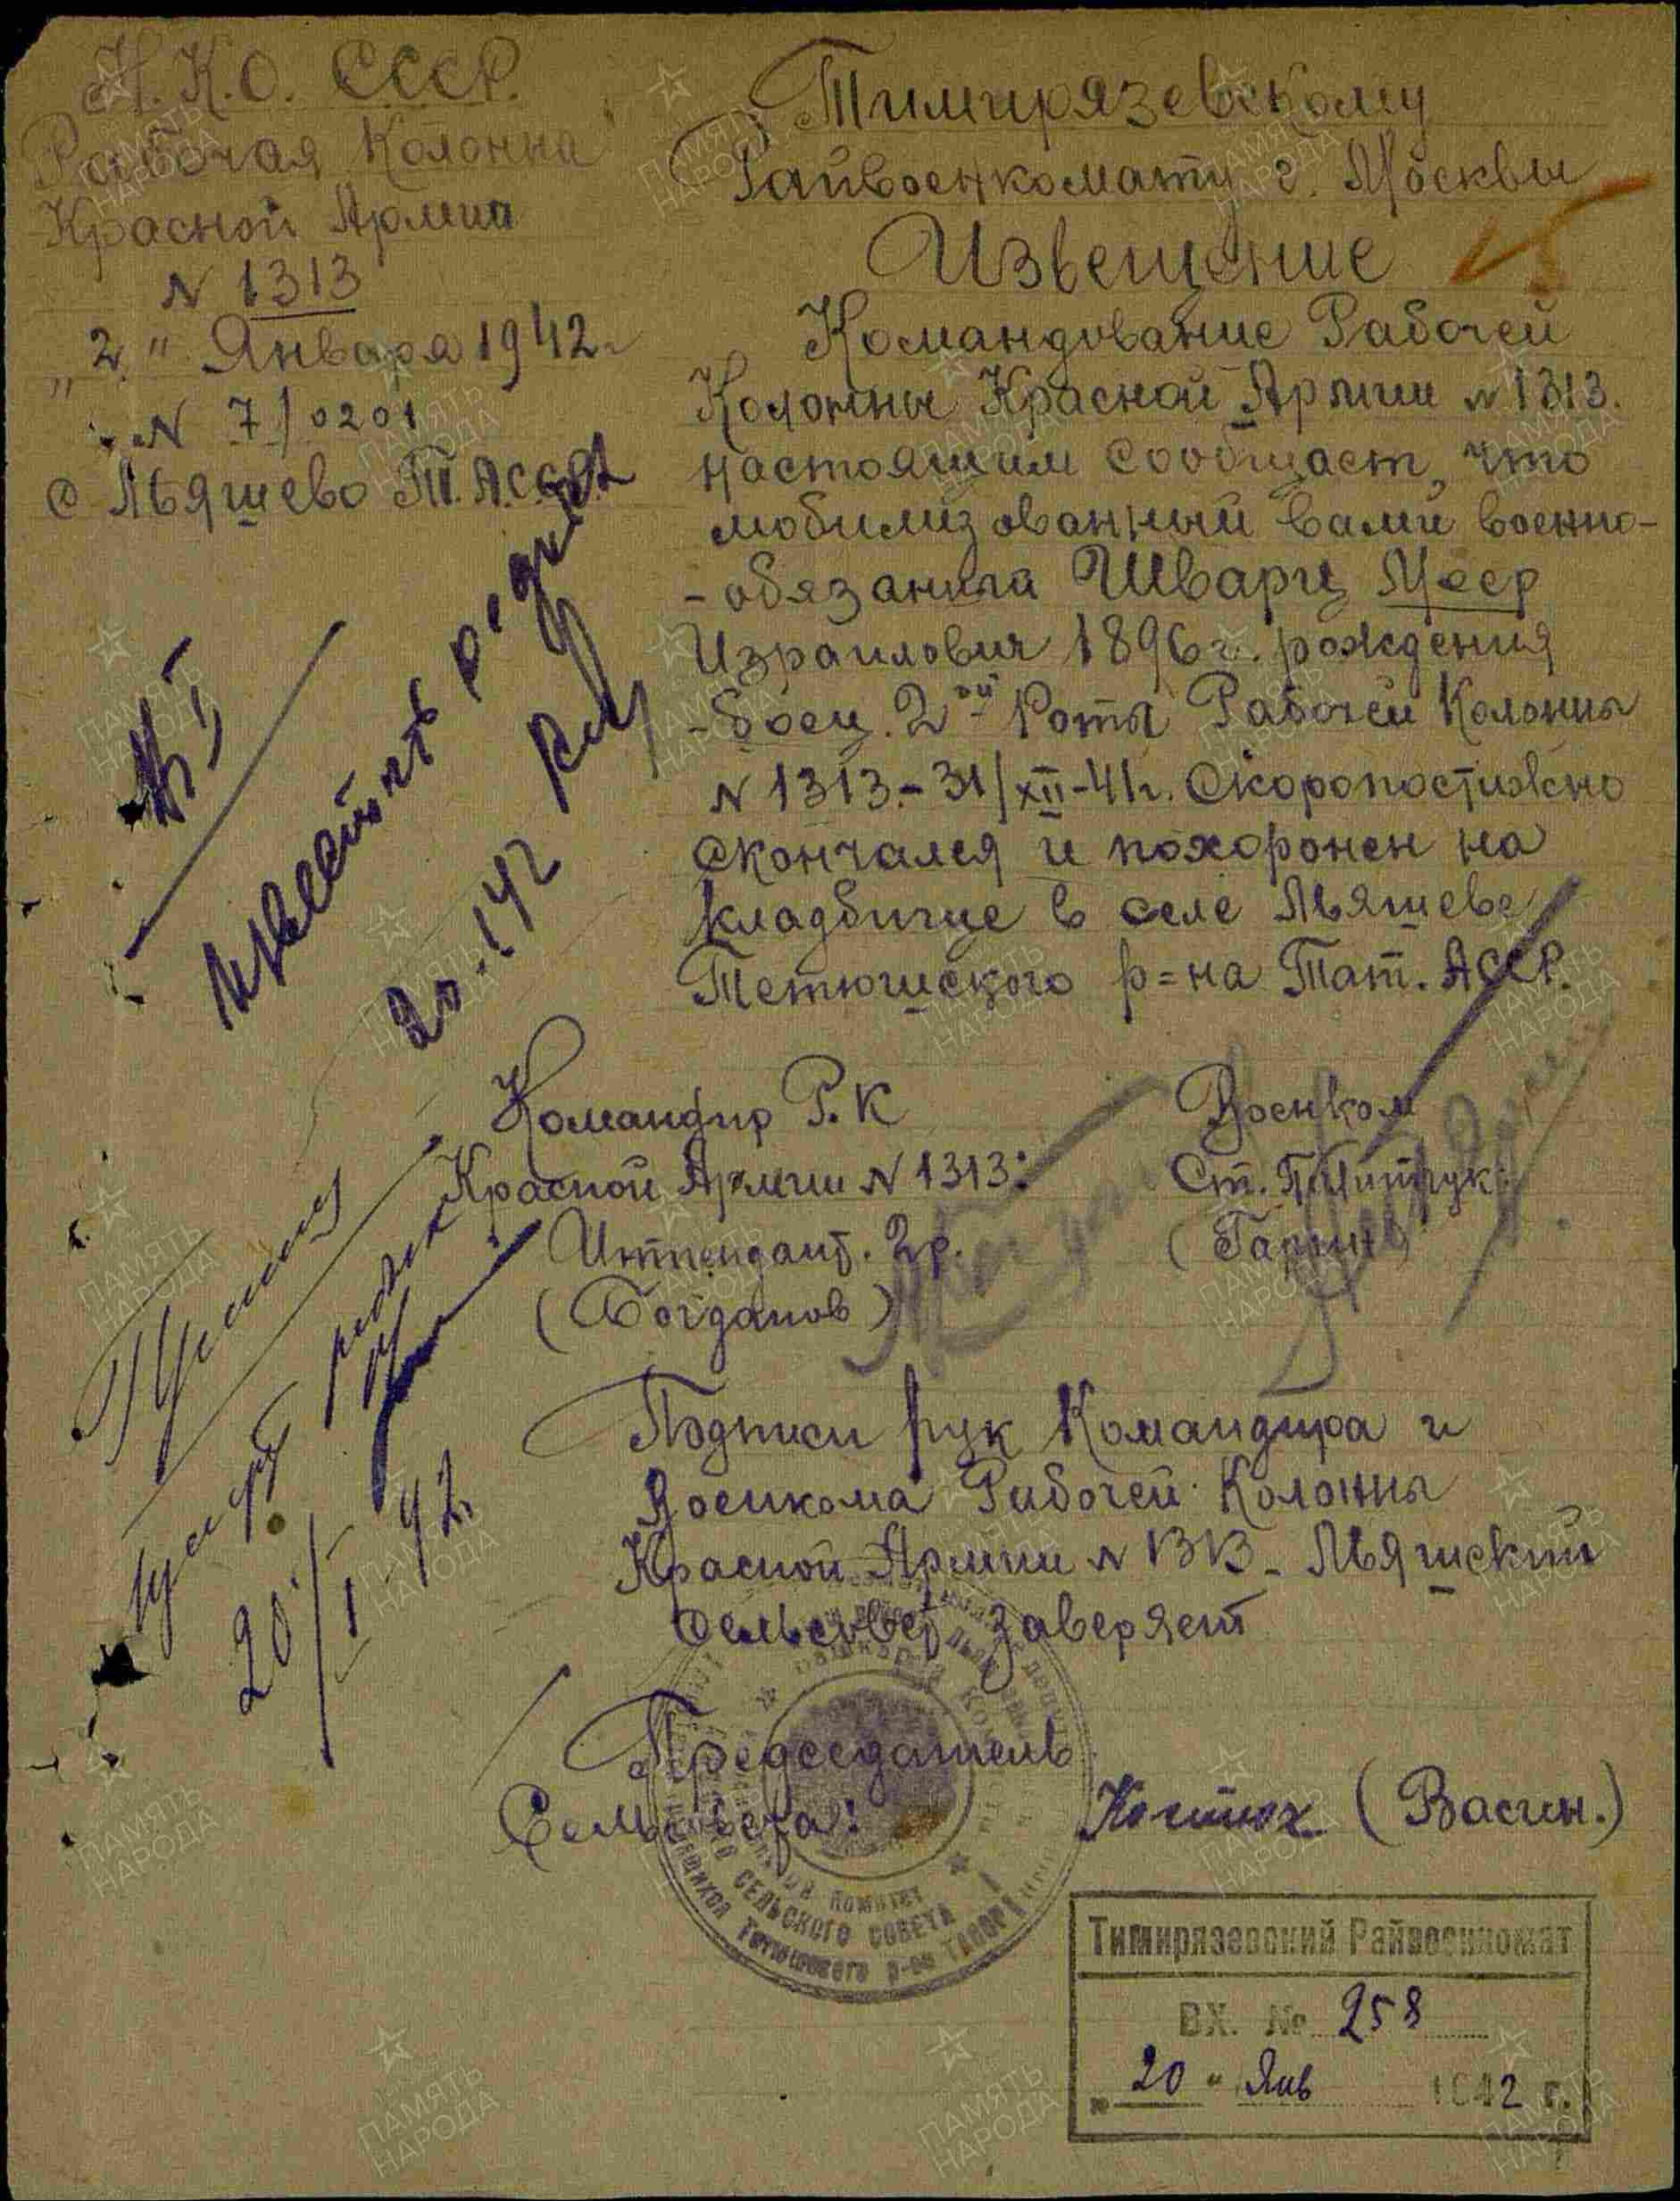 Н.К.О. СССР.
Рабочая Колонна
Красной Армии
N 1313
„2" Января 1942 г
N 7/0201
с Льяшево Т.А.ССР.
Тимирязевскому
Райвоенкомату г. Москвы
Извещение
Командование Рабочей
Колонны Красной Армии N 1313.
настоящим сообщает, что
мобилизованный вами военно-
-обязаный Шварц Меер
Израилович 1896 г. рождения
-боец. 2ой Роты Рабочей Колонны
N 1313.- 31/XII-41г. Скоропостижно
скончался и похоронен на
кладбище в селе Льяшеве
Тетюшского р=на Тат. АССР.
Командир Р.К
Красной Армии N 1313:
Интендант. 2р.
(Богданов)
Военком
Ст. Политрук:
(Гарин)
Подписи рук Командира и
Военкома Рабочей Колонны
Красной Армии N 1313 - Льяшский
Сельсовет заверяет
Председатель
Сельсовета:
(Васин.)
Известить
20.1 42
20/I 42.
КОМИТЕТ
СЕЛЬСКОГО СОВЕТА
Тетюшского р-на ТАССР
Тимирязевский Райвоенкомат
ВХ. № 258
„20" Янв 1942 г.
ПАМЯТЬ
НАРОДА